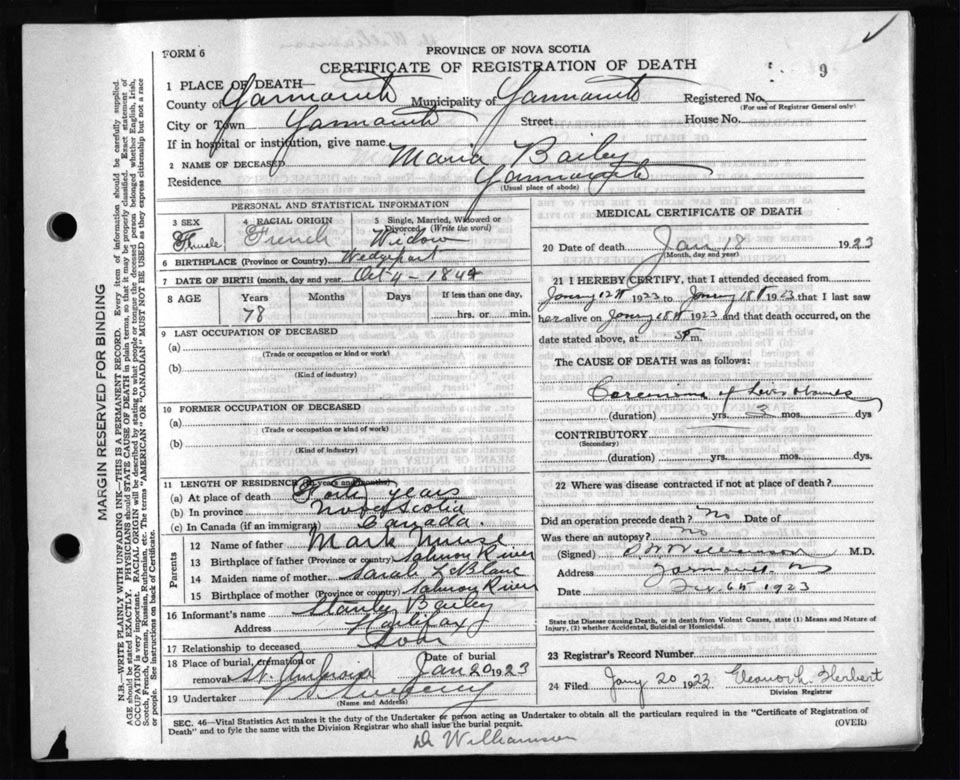 FORM 6
PROVINCE OF NOVA SCOTIA
CERTIFICATE OF REGISTRATION OF DEATH
9
1 PLACE OF DEATH—
County of Yarmouth Municipality of Yarmouth Registered No.
(For use of Registrar General only)
City or Town Yarmouth Street House No.
If in hospital or institution, give name
2 NAME OF DECEASED Maria Bailey
Residence Yarmouth
(Usual place of abode)
PERSONAL AND STATISTICAL INFORMATION
3 SEX Female
4 RACIAL ORIGIN French
5 Single, Married, Widowed or Divorced (Write the word) Widow
6 BIRTHPLACE (Province or Country) Wedgeport
7 DATE OF BIRTH (month, day and year) Oct 4 - 1844
8 AGE Years Months Days If less than one day,
78 hrs. or min.
9 LAST OCCUPATION OF DECEASED
(a)
(Trade or occupation or kind or work)
(b)
(Kind of industry)
10 FORMER OCCUPATION OF DECEASED
(a)
(Trade or occupation or kind of work)
(b)
(Kind of industry)
11 LENGTH OF RESIDENCE (in years and months)
(a) At place of death Forty years
(b) In province Nova Scotia
(c) In Canada (if an immigrant) Canada.
Parents
12 Name of father Mark Muise
13 Birthplace of father (Province or country) Salmon River
14 Maiden name of mother Sarah LeBlanc
15 Birthplace of mother (Province or country) Salmon River
16 Informant's name Stanley Bailey
Address Halifax
17 Relationship to deceased Son
18 Place of burial, cremation or removal St. Ambroise Date of burial Jan 20 1923
19 Undertaker
(Name and Address)
MEDICAL CERTIFICATE OF DEATH
20 Date of death Jan 18 1923
(Month, day and year)
21 I HEREBY CERTIFY, that I attended deceased from
12th 1923 to 18th 1923 that I last saw
her alive on 18th 1923 and that death occurred, on the
date stated above, at m.
The CAUSE OF DEATH was as follows:
of
(duration) yrs. 3 mos. dys
CONTRIBUTORY
(Secondary)
(duration) yrs. mos. dys.
22 Where was disease contracted if not at place of death?
Did an operation precede death? No Date of
Was there an autopsy? No
(Signed) Williamson M.D.
Address Yarmouth NS
Date 1923
State the Disease causing Death, or in death from Violent Causes, state (1) Means and Nature of Injury, (2) whether Accidental, Suicidal or Homicidal.
23 Registrar's Record Number
24 Filed Jany 20 1923 Eleanor L. Herbert
Division Registrar
SEC. 46—Vital Statistics Act makes it the duty of the Undertaker or person acting as Undertaker to obtain all the particulars required in the "Certificate of Registration of
Death" and to fyle the same with the Division Registrar who shall issue the burial permit. (OVER)
Dr Williamson
MARGIN RESERVED FOR BINDING
N.B.—WRITE PLAINLY WITH UNFADING INK—THIS IS A PERMANENT RECORD. Every item of information should be carefully supplied.
AGE should be stated EXACTLY. PHYSICIANS should STATE CAUSE OF DEATH in plain terms, so that it may be properly classified. Exact statement of
OCCUPATION is very important. RACIAL ORIGIN will be described by stating to what people or tongue the deceased person belonged whether English, Irish,
Scotch, French, German, Russian, Ruthenian, etc. The terms "AMERICAN" OR "CANADIAN" MUST NOT BE USED as they express citizenship but not a race
or people. See instructions on back of Certificate.